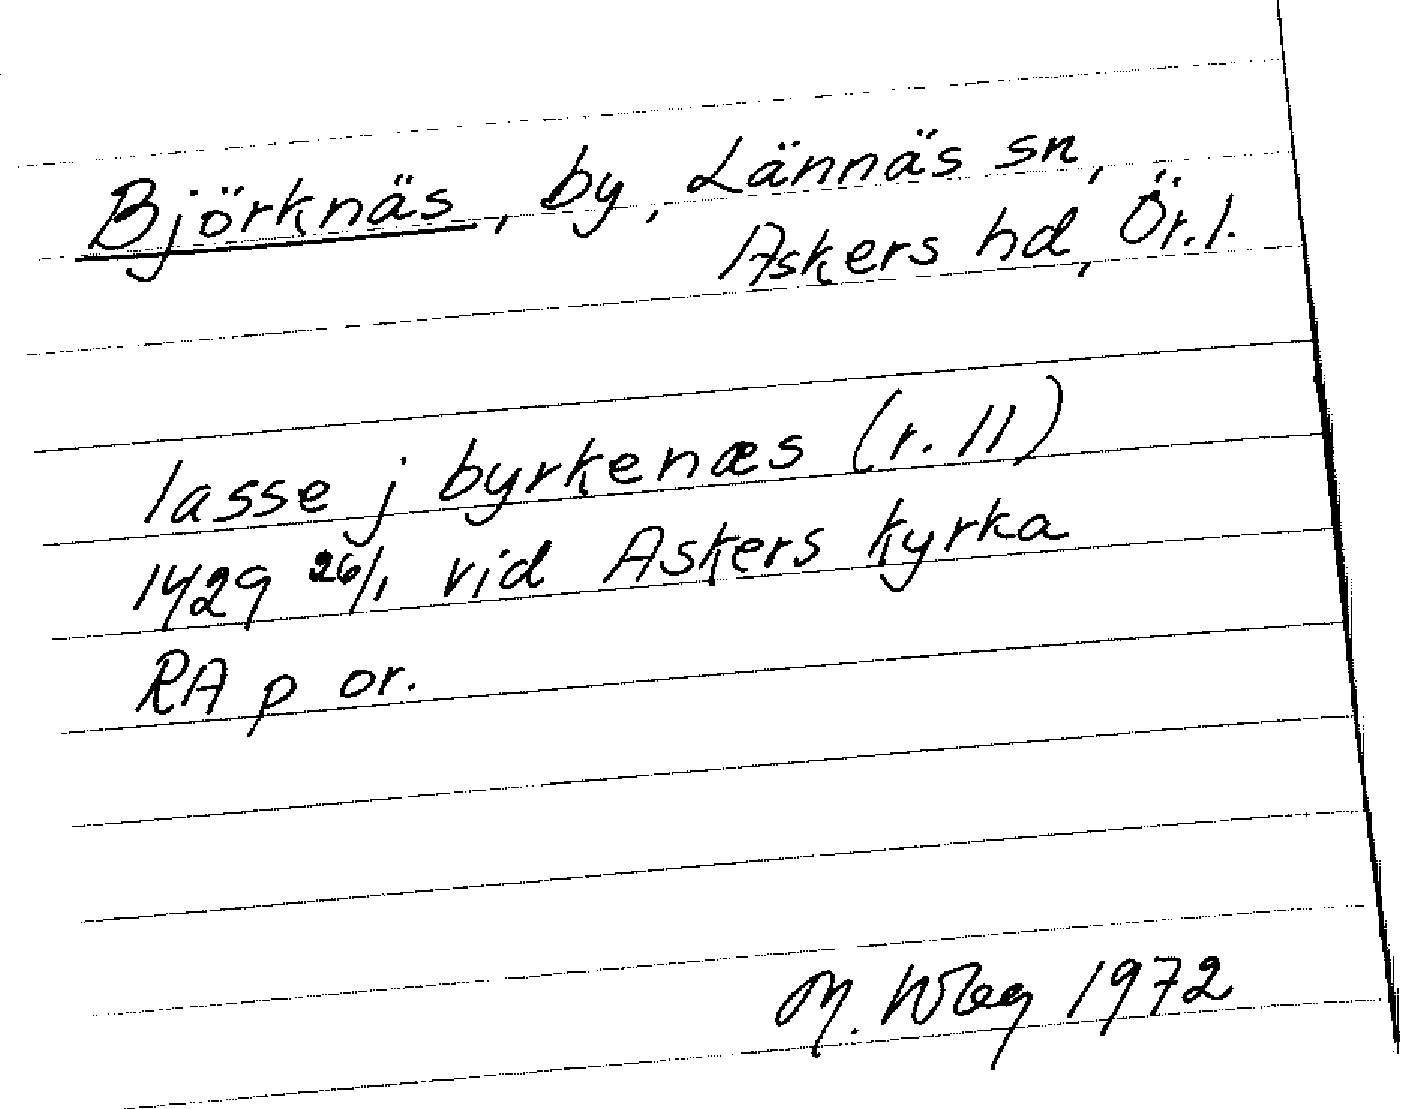 Björknäs, by, Lännäs sn,
Askers hd, Ör. l.
lasse j byrkenæs (r. 11)
1429 26/1 vid Askers kyrka
RA p or.
M. 1972